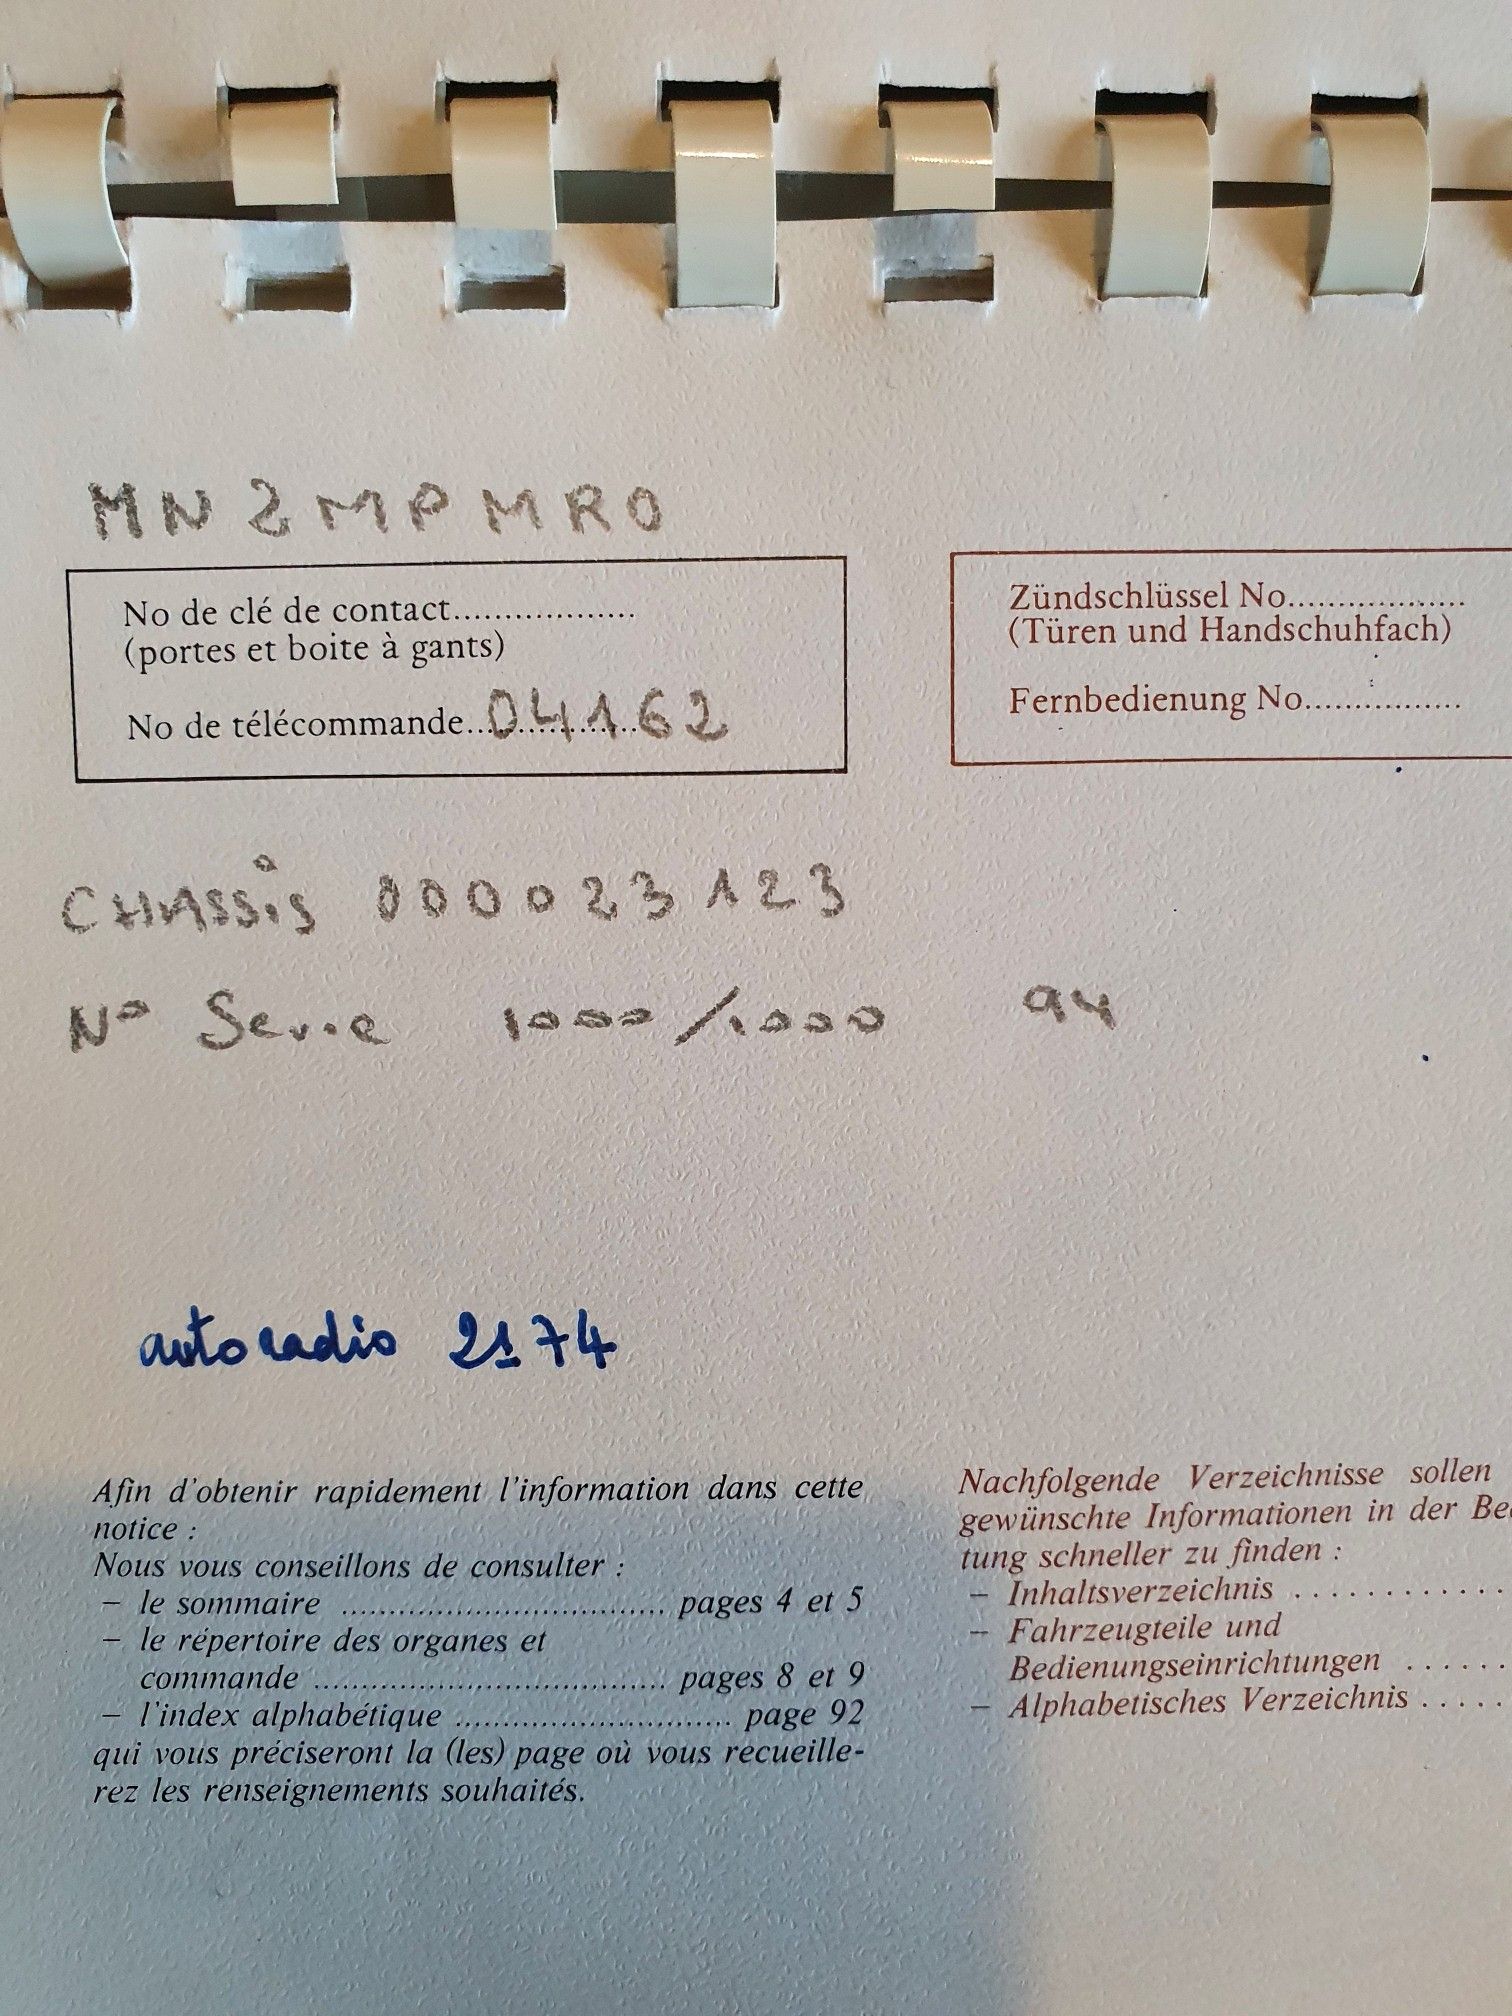 MN2MPMRO
No de clé de contact..................
(portes et boite à gants)
No de télécommande...04162
Zündschlüssel No..................
(Türen und Handschuhfach)
Fernbedienung No................
CHASSis 000023123
N° Serie 1000/1000 94
autoradio 2174
Afin d'obtenir rapidement l'information dans cette
notice :
Nous vous conseillons de consulter :
– le sommaire .................................. pages 4 et 5
– le répertoire des organes et
commande ..................................... pages 8 et 9
– l'index alphabétique ............................. page 92
qui vous préciseront la (les) page où vous recueille-
rez les renseignements souhaités.
Nachfolgende Verzeichnisse sollen
gewünschte Informationen in der Be
tung schneller zu finden :
– Inhaltsverzeichnis . . . . . . . . . . . .
– Fahrzeugteile und
Bedienungseinrichtungen . . . . . .
– Alphabetisches Verzeichnis . . . . .